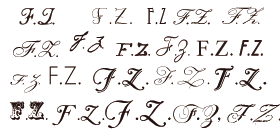 F.Z. F.Z. F.Z. F.Z. F.Z.
F.Z. F.Z. F.Z. F.Z. F.Z. F.Z.
F.Z. F.Z. F.Z. F.Z. F.Z.
F.Z. F.Z. F.Z. F.Z. F.Z.